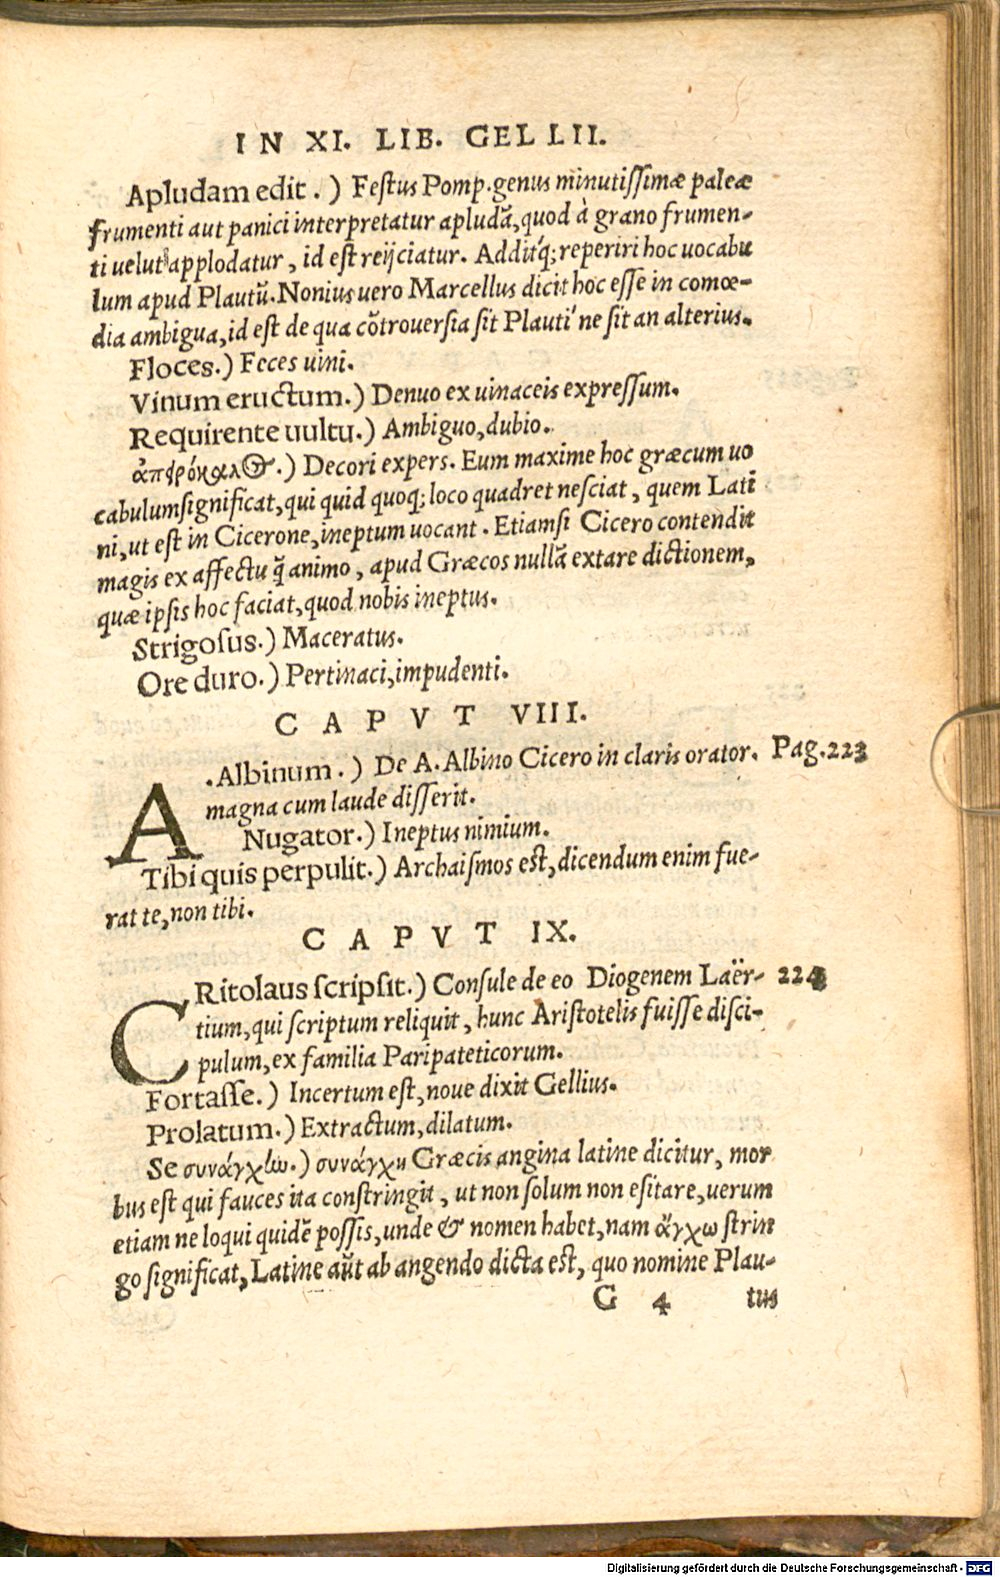 IN XI. LIB. GELLII.
Apludam edit.) Festus Pomp. genus minutissimæ paleæ
frumenti aut panici interpretatur apludā, quod à grano frumen-
ti uelut applodatur, id est reijciatur. Additq́; reperiri hoc uocabu
lum apud Plautū. Nonius uero Marcellus dicit hoc esse in comœ-
dia ambigua, id est de qua cōtrouersia sit Plauti ne sit an alterius.
Floces.) Feces uini.
Vinum eructum.) Denuo ex uinaceis expressum.
Requirente uultu.) Ambiguo, dubio.
ἀπειρόκαλος.) Decori expers. Eum maxime hoc græcum uo
cabulum significat, qui quid quoq; loco quadret nesciat, quem Lati
ni, ut est in Cicerone, ineptum uocant. Etiamsi Cicero contendit
magis ex affectu q̃ animo, apud Græcos nullā extare dictionem,
quæ ipsis hoc faciat, quod nobis ineptus.
Strigosus.) Maceratus.
Ore duro.) Pertinaci, impudenti.
CAPVT VIII.
A.Albinum.) De A. Albino Cicero in claris orator. Pag.223
magna cum laude disserit.
Nugator.) Ineptus nimium.
Tibi quis perpulit.) Archaismos est, dicendum enim fue-
rat te, non tibi.
CAPVT IX.
CRitolaus scripsit.) Consule de eo Diogenem Laër- 224
tium, qui scriptum reliquit, hunc Aristotelis fuisse disci-
pulum, ex familia Paripateticorum.
Fortasse.) Incertum est, noue dixit Gellius.
Prolatum.) Extractum, dilatum.
Se συνάγχίω.) συνάγχη Græcis angina latine dicitur, mor
bus est qui fauces ita constringit, ut non solum non esitare, uerum
etiam ne loqui quidē possis, unde & nomen habet, nam ἄγχω strin
go significat, Latine aūt ab angendo dicta est, quo nomine Plau-
G 4 tus
Digitalisierung gefördert durch die Deutsche Forschungsgemeinschaft - DFG